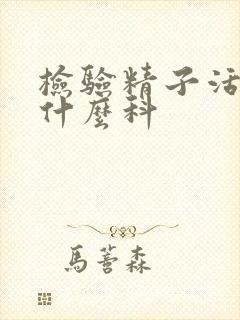 檢驗精子活
什麼科
馬薈森